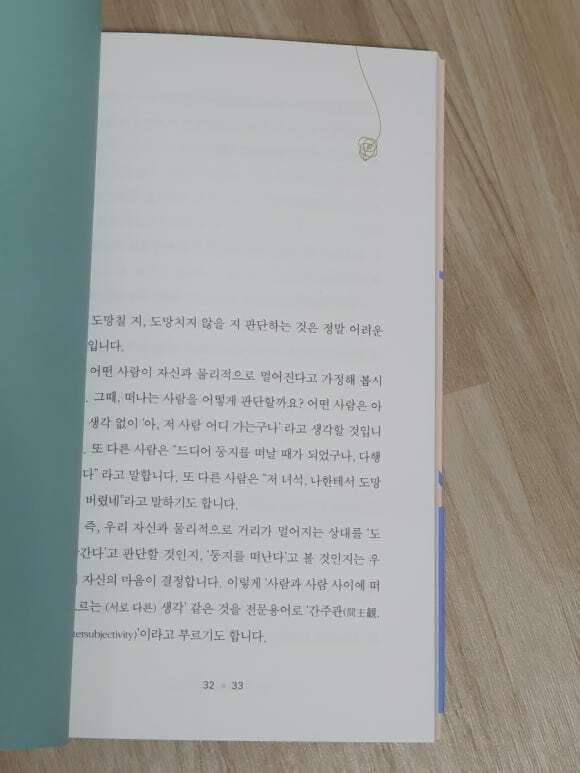 도망칠 지, 도망치지 않을 지 판단하는 것은 정말 어려운
입니다.
어떤 사람이 자신과 물리적으로 멀어진다고 가정해 봅시
. 그때, 떠나는 사람을 어떻게 판단할까요? 어떤 사람은 아
생각 없이 '아, 저 사람 어디 가는구나' 라고 생각할 것입니
. 또 다른 사람은 "드디어 둥지를 떠날 때가 되었구나, 다행
다" 라고 말합니다. 또 다른 사람은 "저 녀석, 나한테서 도망
버렸네"라고 말하기도 합니다.
즉, 우리 자신과 물리적으로 거리가 멀어지는 상대를 '도
간다'고 판단할 것인지, '둥지를 떠난다'고 볼 것인지는 우
자신의 마음이 결정합니다. 이렇게 '사람과 사람 사이에 떠
오르는 (서로 다른) 생각' 같은 것을 전문용어로 '간주관(間主觀.
tersubjectivity)'이라고 부르기도 합니다.
32 33